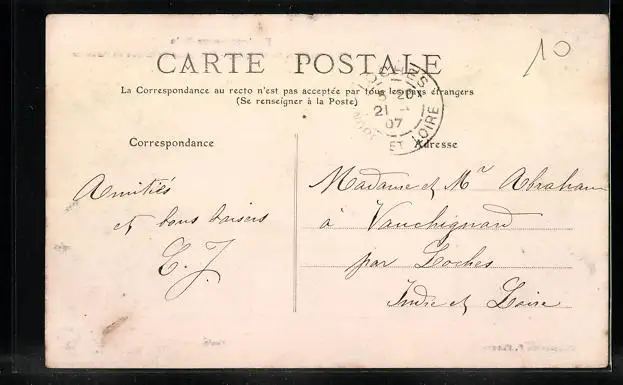 10
CARTE POSTALE
La Correspondance au recto n'est pas acceptée par tous les pays étrangers
(Se renseigner à la Poste)
21
07
ET LOIRE
Correspondance
Adresse
Amitiés
et bons baisers
E. J.
Madame et Mr Abraham
à Vauchignard
par Loches
Indre et Loire